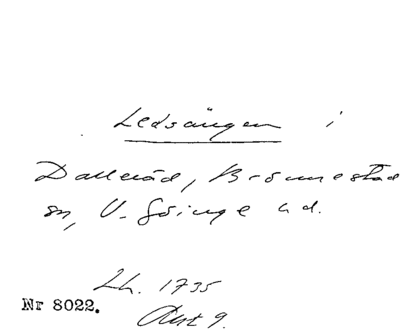 Ledsängen i
Dalleröd, Brönnestad
sn, V. Göinge hd.
Lh. 1735
Nr 8022.
9.